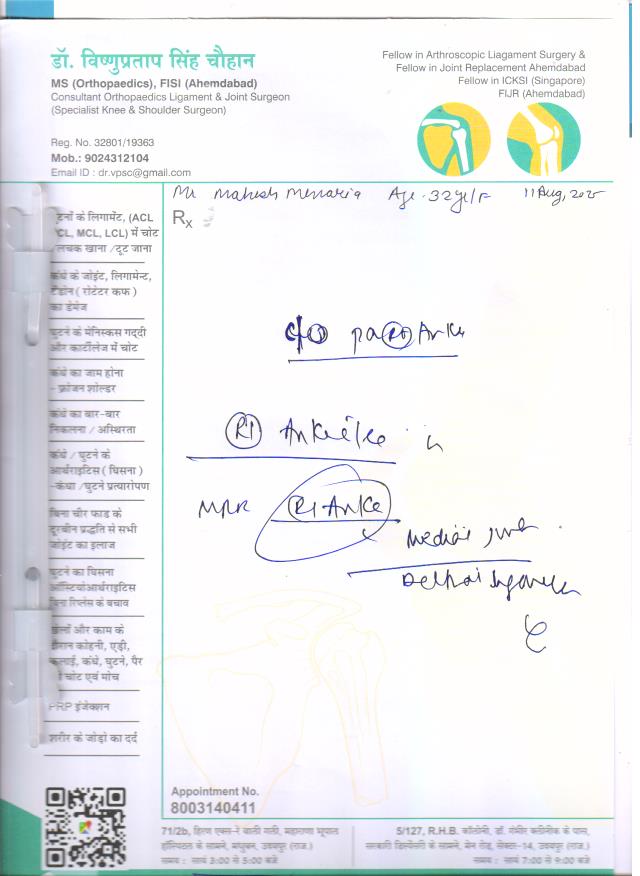 डॉ. विष्णुप्रताप सिंह चौहान
MS (Orthopaedics), FISI (Ahemdabad)
Consultant Orthopaedics Ligament & Joint Surgeon
(Specialist Knee & Shoulder Surgeon)
Reg. No. 32801/19363
Mob.: 9024312104
Email ID : dr.vpsc@gmail.com
Fellow in Arthroscopic Liagament Surgery &
Fellow in Joint Replacement Ahemdabad
Fellow in ICKSI (Singapore)
FIJR (Ahemdabad)
Mr Mahesh Menaria Age - 32 yr/ 11 Aug, 2025
Rx
के लिगामेंट, (ACL
MCL, LCL) में चोट
खाना /टूट जाना
कंधे के जोइंट, लिगामेन्ट,
टेंडोन ( रोटेटर कफ )
का डैमेज
घुटने के मेनिस्कस गद्दी
और कार्टीलेज में चोट
कंधे का जाम होना
- फ्रोजन शोल्डर
कंधे का बार-बार
निकलना / अस्थिरता
कंधे / घुटने के
आर्थराइटिस ( घिसना )
-कंधा /घुटने प्रत्यारोपण
बिना चीर फाड के
दूरबीन प्रद्धति से सभी
जोइंट का इलाज
घुटने का घिसना
ऑस्टियोआर्थराइटिस
बिना रिप्लेस के बचाव
खेलों और काम के
दौरान कोहनी, एड़ी,
कलाई, कंधे, घुटने, पैर
चोट एवं मोच
PRP इंजेक्शन
शरीर के जोड़ों का दर्द
c/o
Rt
Rt Ankle
Medial
Appointment No.
8003140411
71/2b, हिरण एक्स-रे वाली गली, महाराणा भूपाल
हॉस्पिटल के सामने, मधुबन, उदयपुर (राज.)
समय : सायं 3:00 से 5:00 बजे
5/127, R.H.B. कॉलोनी, डॉ. गंभीर क्लीनिक के पास,
सरकारी डिस्पेंसरी के सामने, मेन रोड, सेक्टर-14, उदयपुर (राज.)
समय : सायं 7:00 से 9:00 बजे